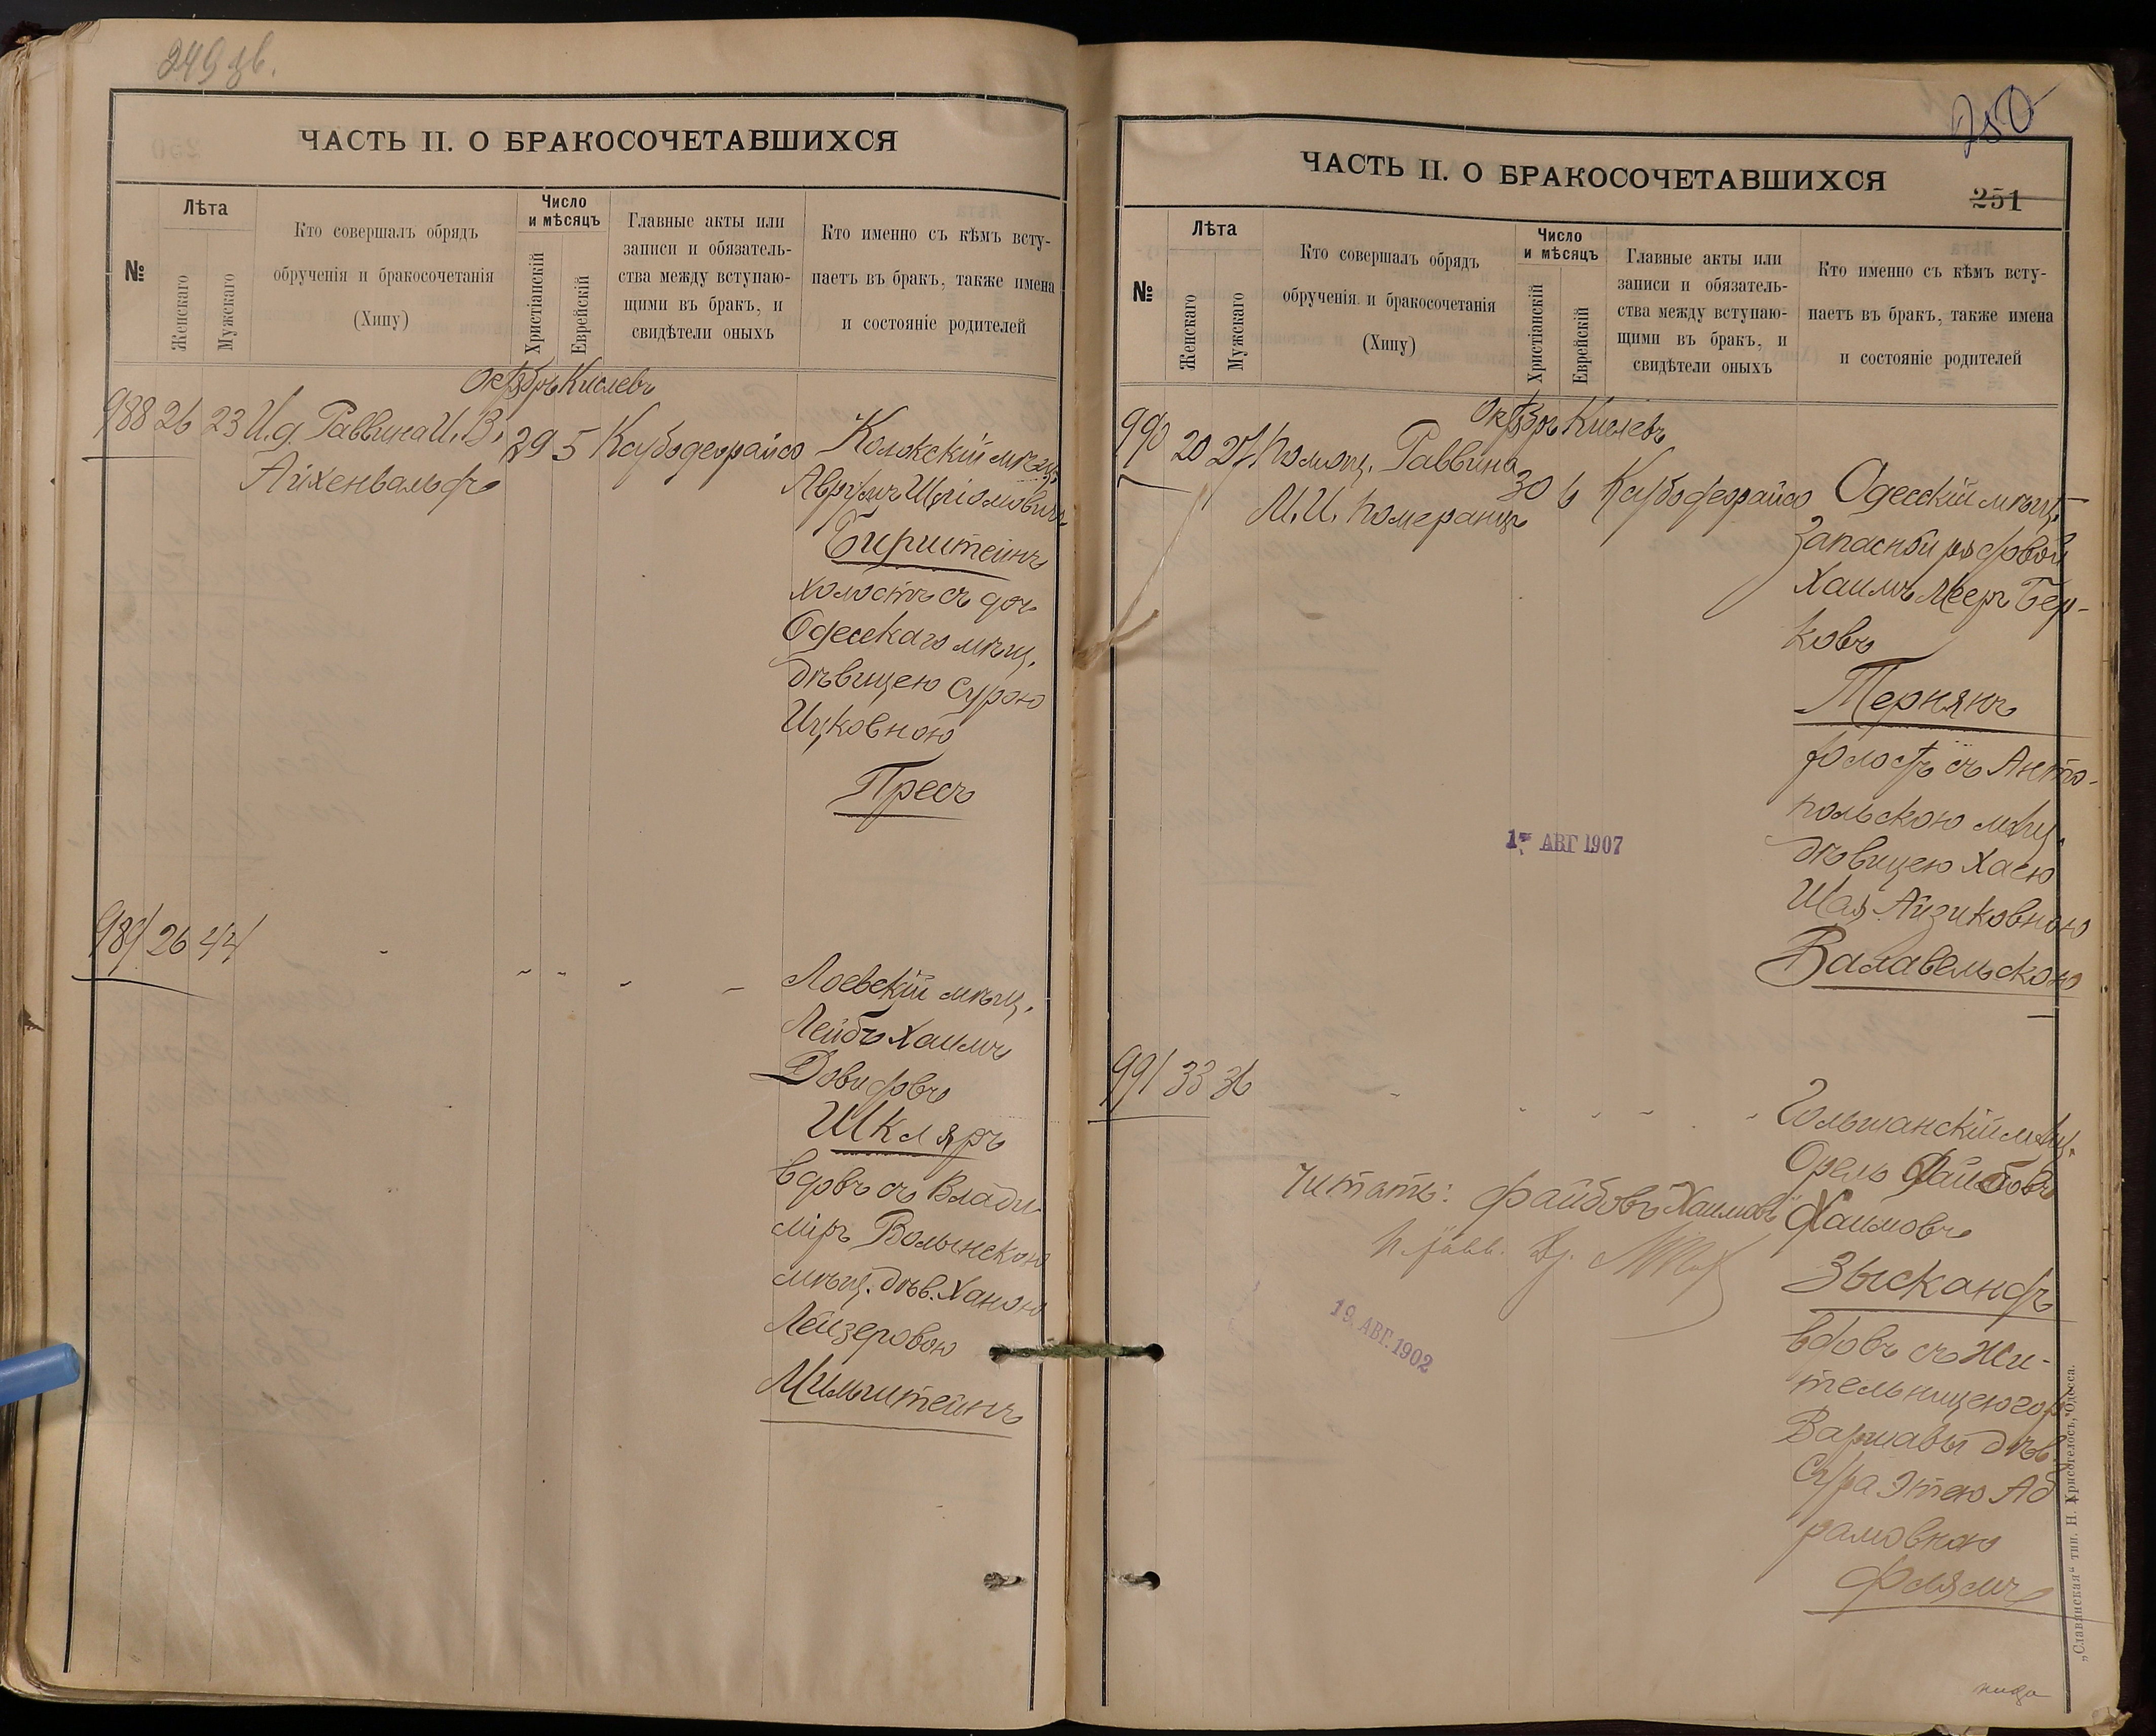 249 зв.
ЧАСТЬ II. О БРАКОСОЧЕТАВШИХСЯ
№
Лѣта
Женскаго
Мужскаго
Кто совершалъ обрядъ
обрученія и бракосочетанія
(Хипу)
Число
и мѣсяцъ
Христіанскій
Еврейскій
Главные акты или
записи и обязатель-
ства между вступаю-
щими въ бракъ, и
свидѣтели оныхъ
Кто именно съ кѣмъ всту-
паетъ въ бракъ, также имена
и состояніе родителей
Октябрь Кислевъ
988 26 23 И. д. Раввина И. В. 29 5 Касубодеорайсо
Айхенвальдъ
Колокскій мѣщ.
Аврумъ Шліомовичъ
Бирштейнъ
холостъ съ доч.
Одесскаго мѣщ.
дѣвицею Сурою
Ицковною
Пресъ
989 26 44 - - - - -
Лоевскій мѣщ.
Лейбъ Хаимъ
Довидовъ
Шкляръ
вдовъ съ Влади-
міръ Волынскою
мѣщ. дѣв. Ханою
Лейзеровою
Мильштейнъ
250
ЧАСТЬ II. О БРАКОСОЧЕТАВШИХСЯ
251
№
Лѣта
Женскаго
Мужскаго
Кто совершалъ обрядъ
обрученія и бракосочетанія
(Хипу)
Число
и мѣсяцъ
Христіанскій
Еврейскій
Главные акты или
записи и обязатель-
ства между вступаю-
щими въ бракъ, и
свидѣтели оныхъ
Кто именно съ кѣмъ всту-
паетъ въ бракъ, также имена
и состояніе родителей
Октябрь Кислевъ
990 20 27 Помощ. Раввина 30 6 Касубодеорайсо
М. И. Померанцъ
Одесскій мѣщ.
Запасной рядовой
Хаимъ Мееръ Бер-
ковъ
Тернянъ
холостъ съ Анто-
польскою мѣщ.
дѣвицею Хаею
Шая-Айзиковною
Валавельскою
1 АВГ 1907
991 33 36 - - - - -
Гольшанскій мѣщ.
Орель Файбовъ
Хаимовъ
Зыскандъ
вдовъ съ жи-
тельницею гор.
Варшавы дѣв.
Сура Этею Аб
рамовною
Флямъ
Читать: Файбовъ Хаимовъ
19. АВГ. 1902
„Славянская“ тип. Н. Хрисогелосъ, Одесса.